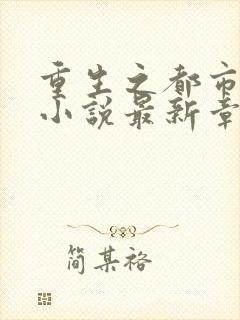 重生之都市
小说最新章
简某裕